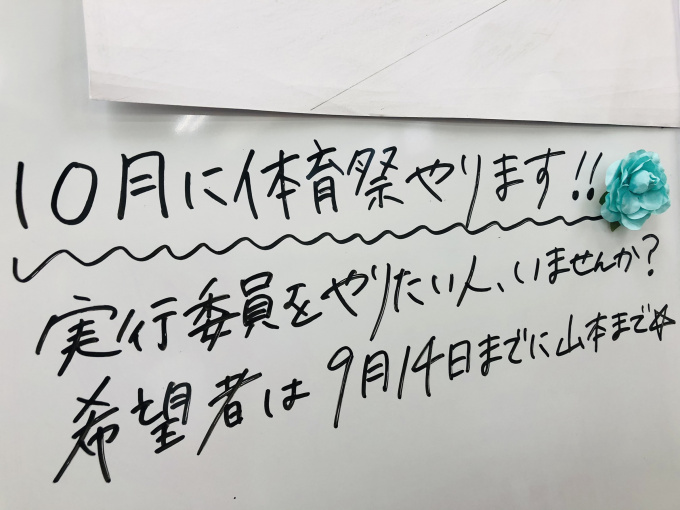 10月に体育祭やります!!
実行委員をやりたい人、いませんか?
希望者は9月14日までに山本まで☆